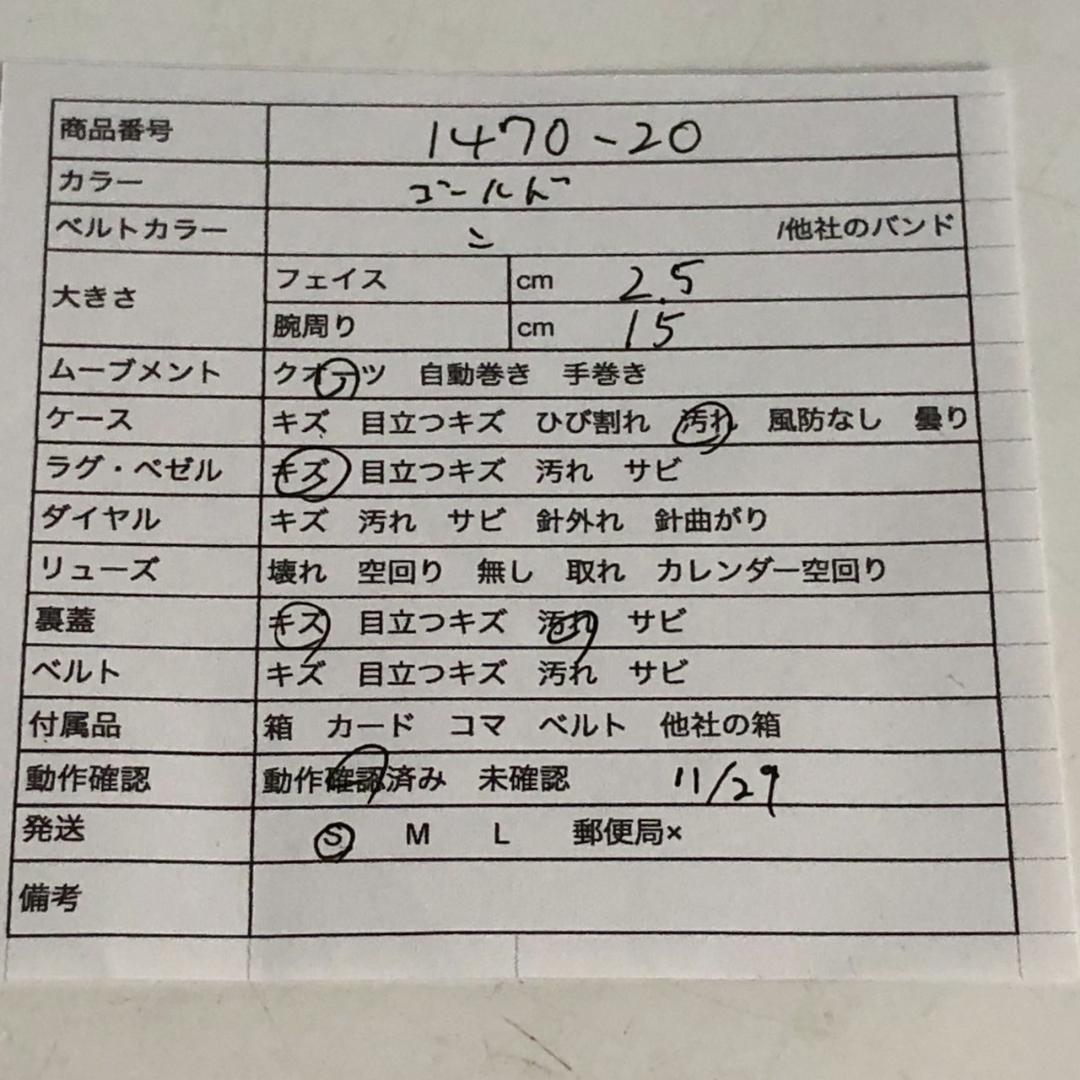 商品番号 1470-20
カラー ゴールド
ベルトカラー 〃 /他社のバンド
大きさ フェイス cm 2.5
腕周り cm 15
ムーブメント クオーツ 自動巻き 手巻き
ケース キズ 目立つキズ ひび割れ 汚れ 風防なし 曇り
ラグ・ベゼル キズ 目立つキズ 汚れ サビ
ダイヤル キズ 汚れ サビ 針外れ 針曲がり
リューズ 壊れ 空回り 無し 取れ カレンダー空回り
裏蓋 キズ 目立つキズ 汚れ サビ
ベルト キズ 目立つキズ 汚れ サビ
付属品 箱 カード コマ ベルト 他社の箱
動作確認 動作確認済み 未確認 11/29
発送 S M L 郵便局×
備考